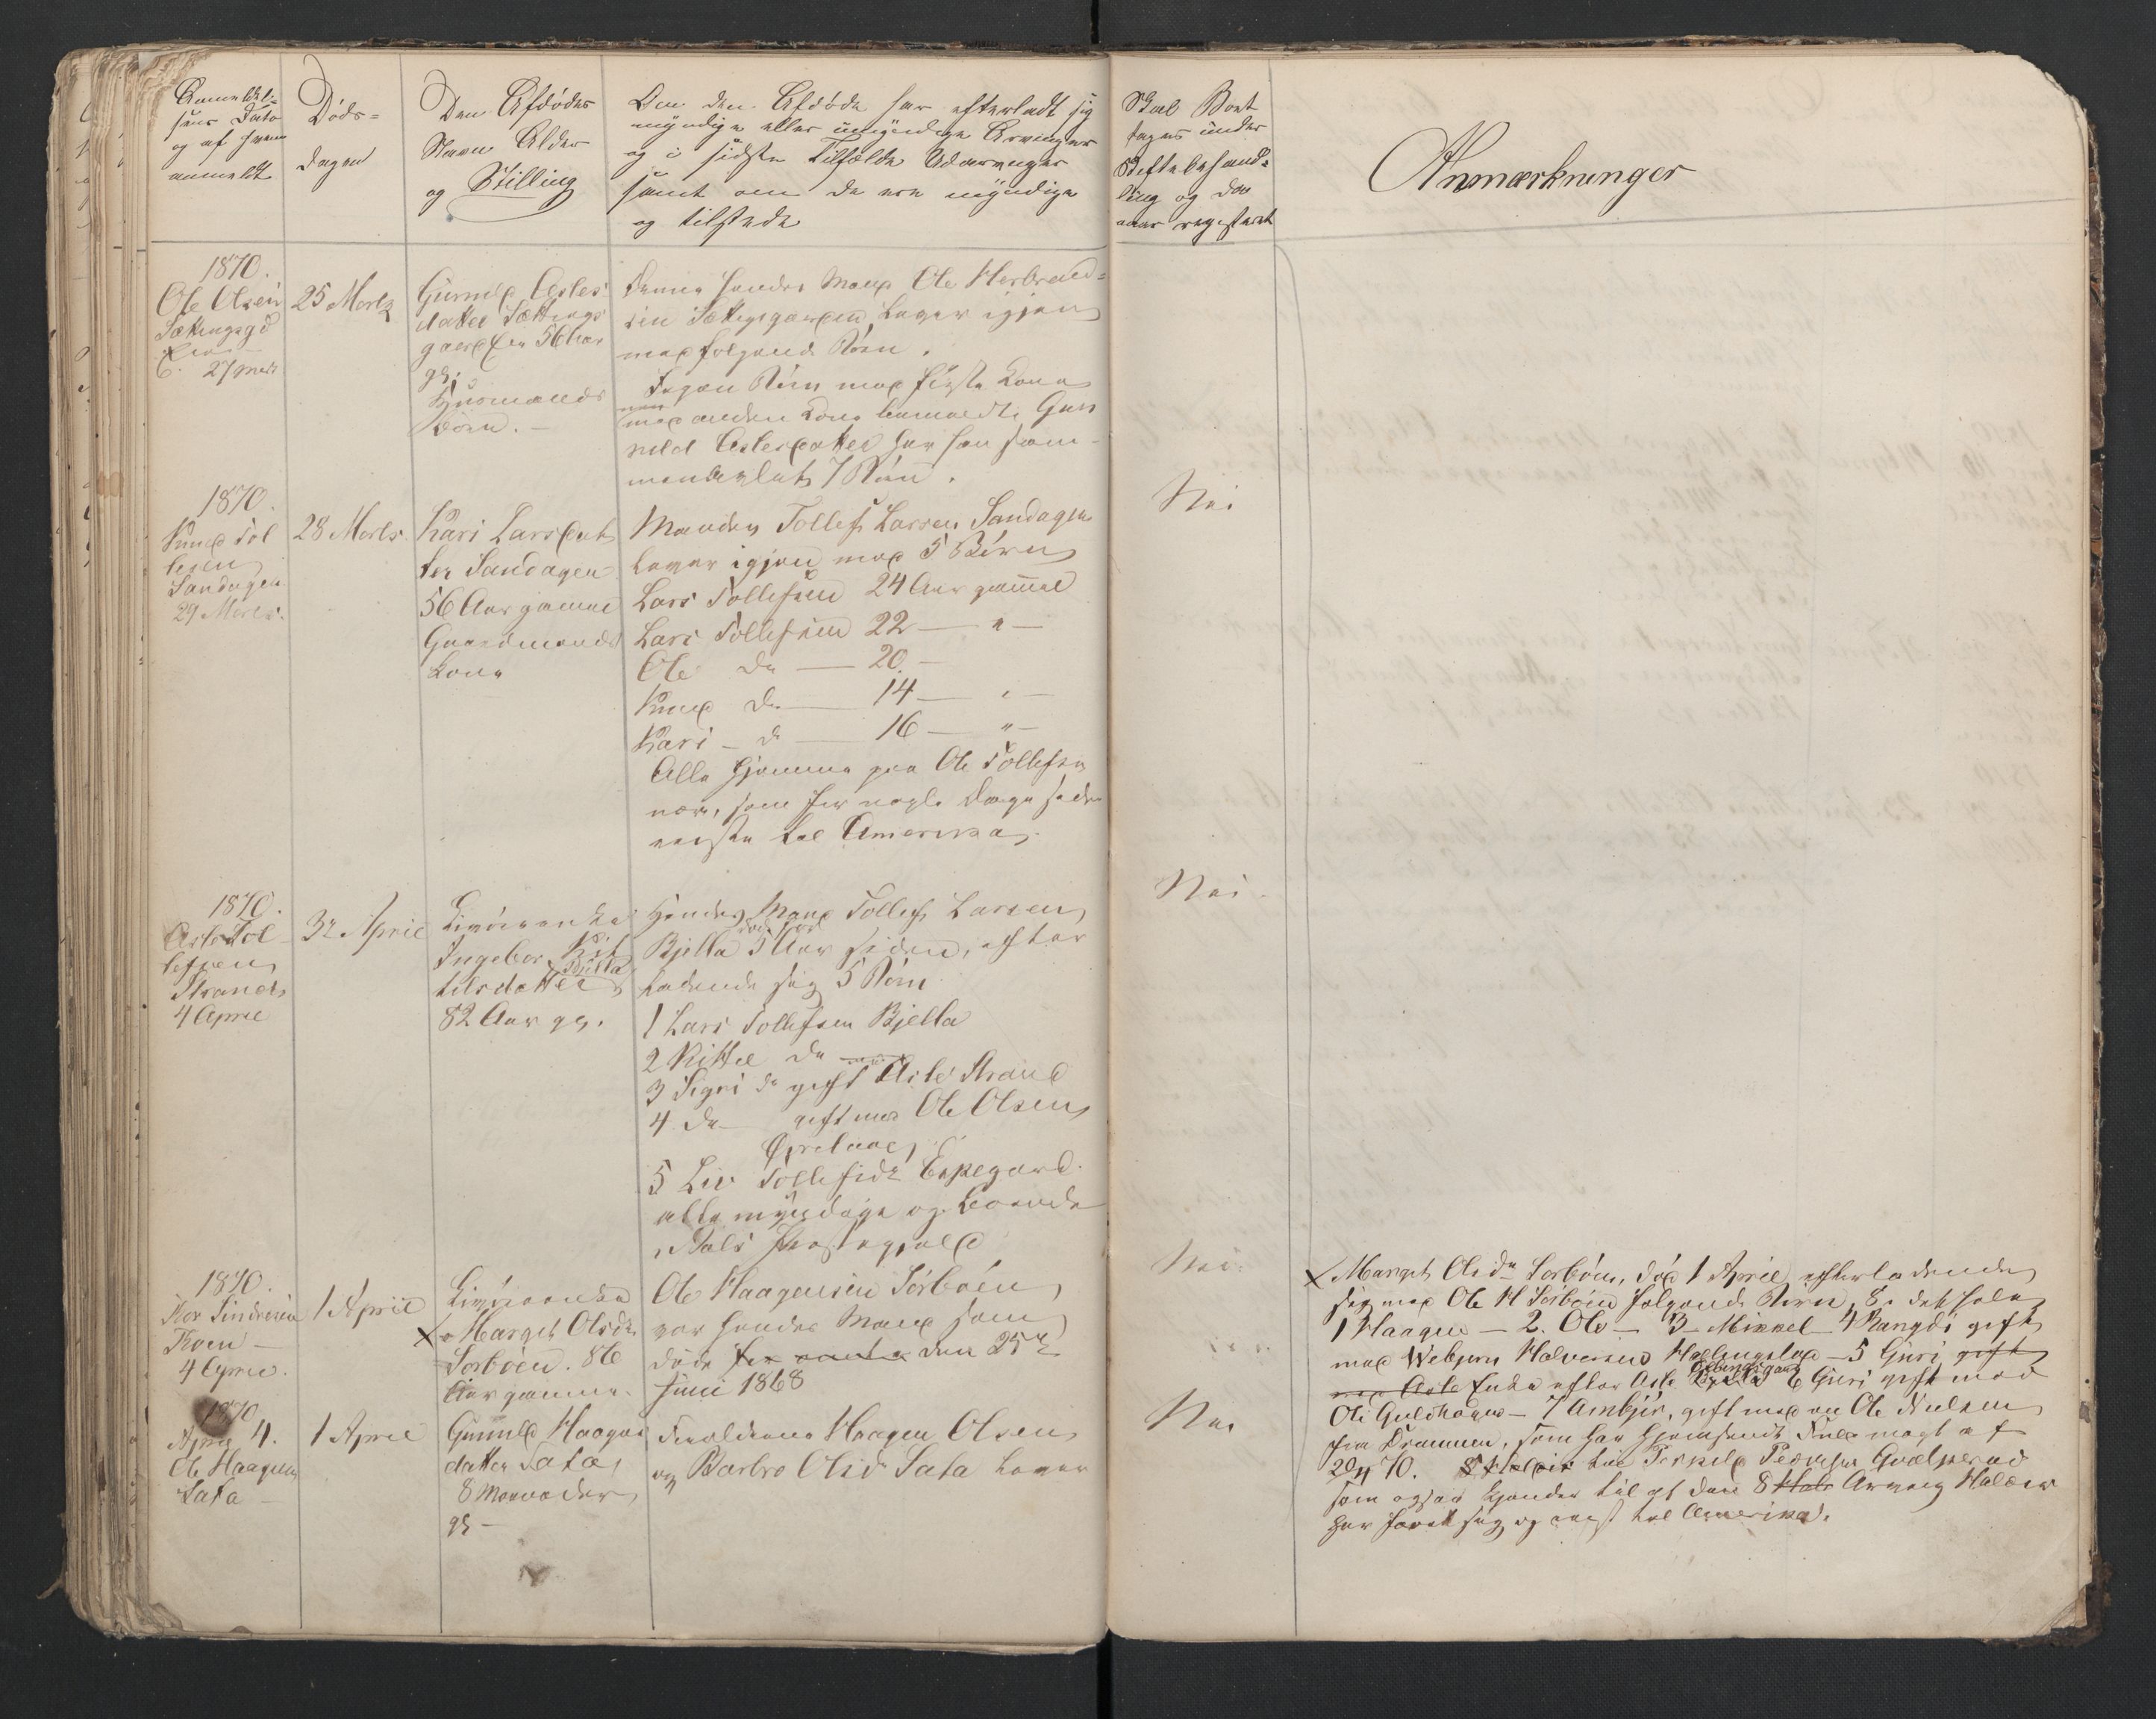 Anmeldel-
sens Dato
og af hvem
anmeldt
Døds-
dagen
Den Afdødes
Navn Alder
og Stilling
Om den Afdøde har efterladt sig
myndige eller umyndige Arvinger
og i sidste Tilfælde Udarvinger
samt om de ere myndige
og tilstede
Skal Boet
tages under
Skiftebehand-
ling og da
naar registeret
Anmærkninger
1870.
Ole Olsen
27 Marts
25 Marts
Gunnild Asles-
datter Sættings
gaarden 56 Aar
gl.
Huusmands
Denne hendes Mand Ole Herbrand-
sen Sættingsgarden, lever igjen
med følgende Børn.
Ingen Børn med første Kone
men
med anden Kone benævnte Gun
nild Aslesdatter har han sam-
menavlet 7 Børn.
Nei
1870.
Knud Tol
lefsen
Sandagen
29 Marts.
28 Marts.
Kari Larsdat
ter Sandagen
56 Aar gammel
Gaardmands
Kone
Manden Tollef Larsen Sandagen
lever igjen med 5 Børn
Lars Tollefsen 24 Aar gammel
Lars Tollefsen 22 — " —
Ole do — 20. —
Knud do — 14 — " —
Kari — do — 16 — " —
Alle hjemme paa Ole Tollefsen
nær, som for nogle Dage siden
reiste til Amerika.
Nei
1870.
Asle Tol
lefsen
Strand
4 April
3die April
Livørenke
Ingebor Kit
telsdatter
Bjella
82 Aar gl.
Hendes Mand Tollef Larsen
Bjella død for 5 Aar siden, efter
ladende sig 5 Børn
1 Lars Tollefsen Bjella
2 Kittel do
3 Sigri do gift Asle Strand
4. do gift med Ole Olsen
5 Liv Tollefsdr Espegard.
alle myndige og boende
i Aals Præstegjeld
Nei.
1870.
Tor Sindresen
Roen —
4 April.
1 April
Livørenke
x Margit Olsdr
Sorbøen. 86
Aar gammel.
Ole Haagensen Sorbøen
var hendes Mand som
døde den 25de
Juni 1868
Nei
x Margit Olsdr Sorbøen, død 1 April efterladende
sig med Ole H Sorbøen følgende Børn, 8 i det hele
1 Haagen — 2. Ole — 3 — Mikkel — 4 Rangdi gift
med Webjørn Halvorsen Hallingslap — 5 Guri gift
med Asle Enke efter Asle 6 Guri gift med
Ole Guldhagen — 7 Ambjør, gift med en Ole Nielsen
fra Drammen, som har hjemsendt Fuldmagt af
20/4 70. til Torkild Pedersen
som ogsaa kjender til at den 8 Arving Halvor
har forladt sig og reist til Amerika.
1870
April 4.
Ole Haagensen
Sata —
1 April
Gunnild Haagens
datter Sata,
8 Maaneder
gl —
Forældrene Haagen Olsen
og Barbro Olsdr Sata lever